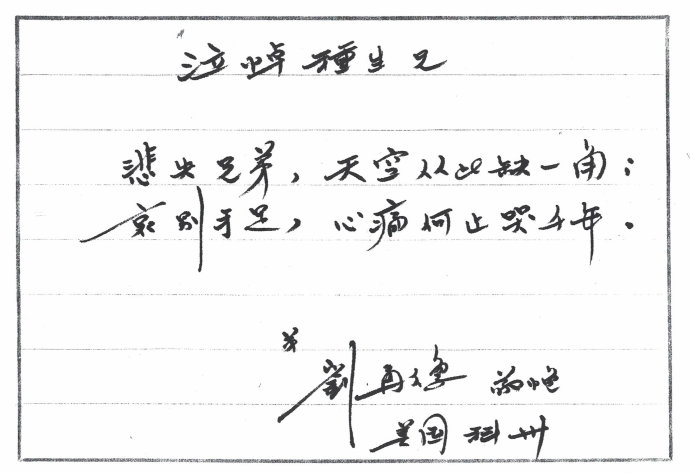 泣悼種生兄
悲失兄弟，天空从此缺一角；
哀别手足，心痛何止哭千年。
弟
劉再復
美国科州